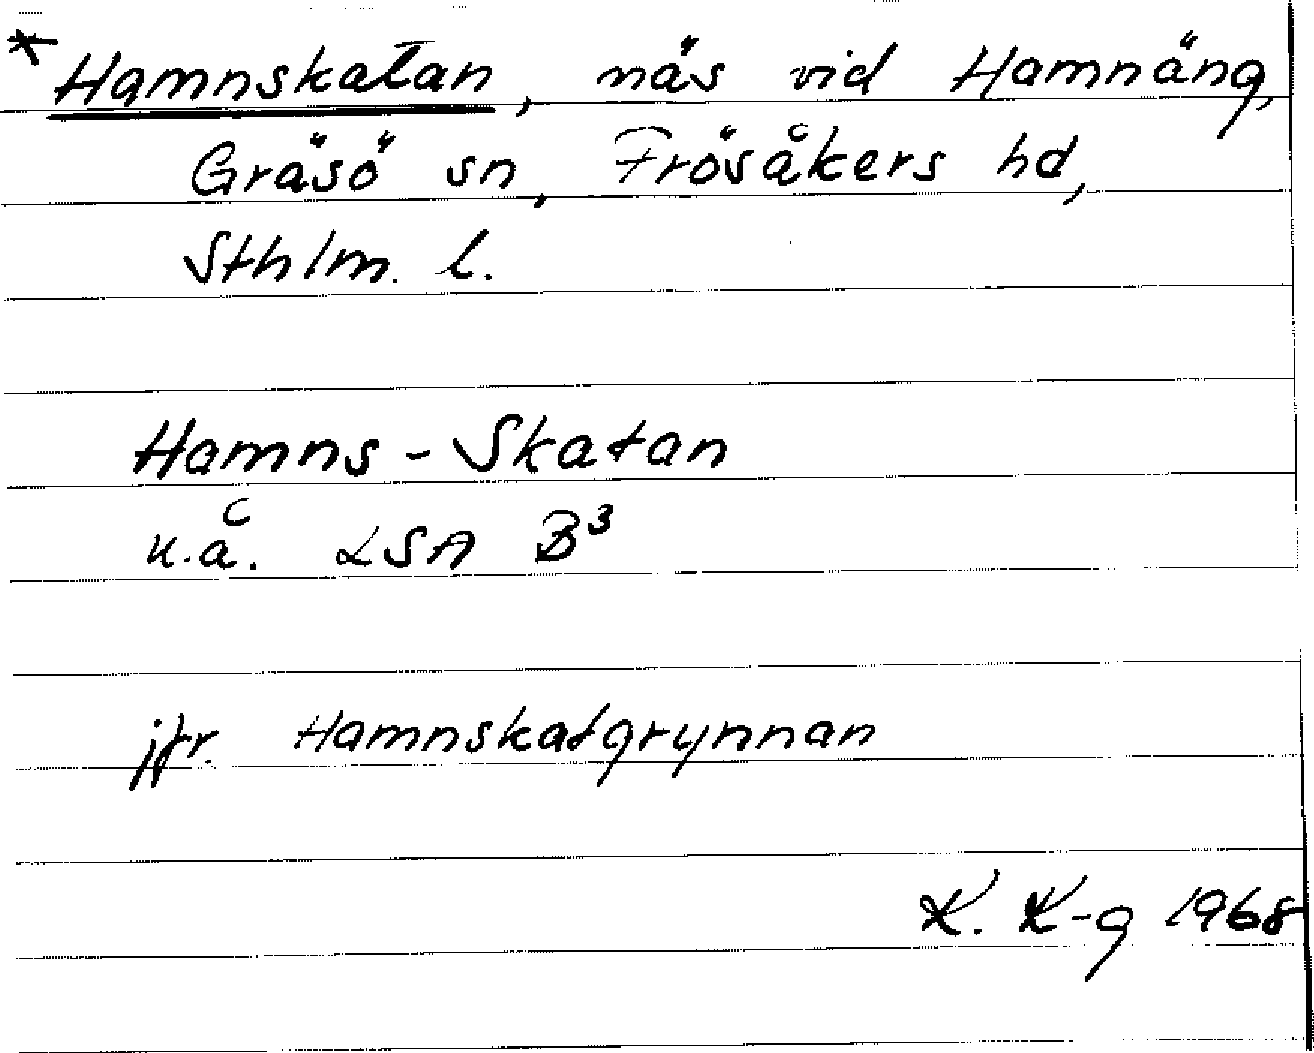 *Hamnskatan, näs vid Hamnäng,
Gräsö sn, Frösåkers hd,
Sthlm. l.
Hamns-Skatan
u.å. LSA B³
jfr. Hamnskatgrynnan
K. K-g 1968